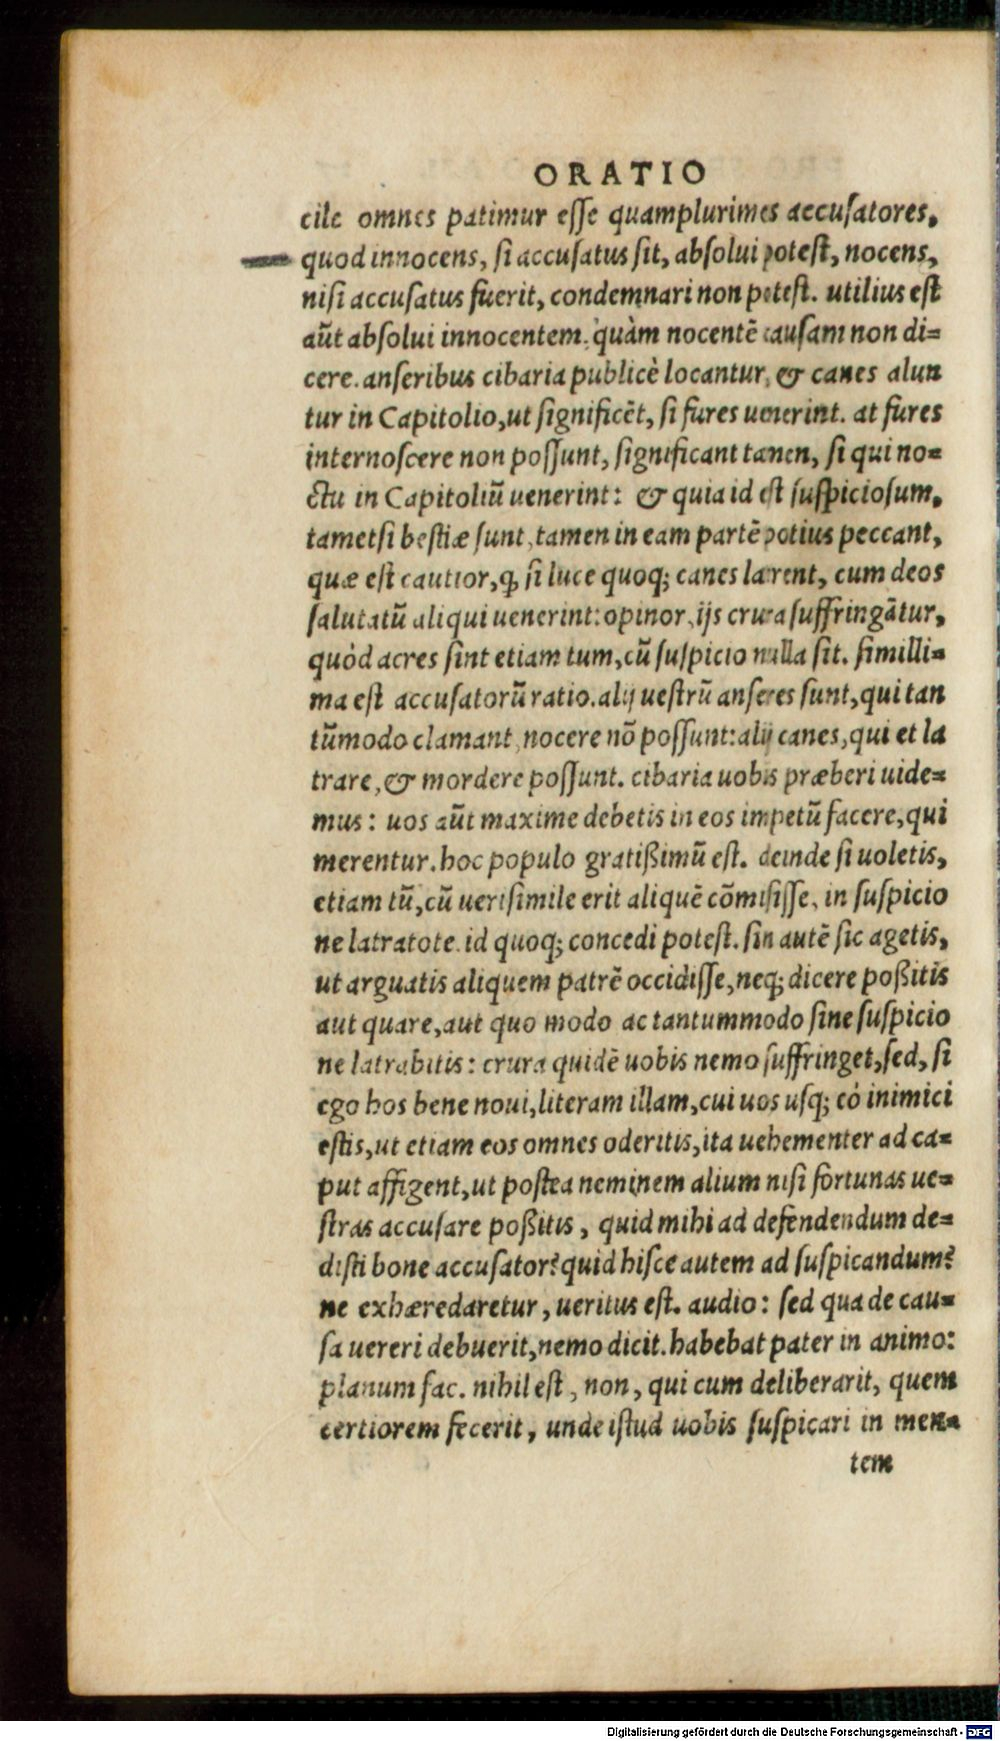 ORATIO
cile omnes patimur esse quamplurimos accusatores,
quod innocens, si accusatus sit, absolui potest, nocens,
nisi accusatus fuerit, condemnari non potest. utilius est
aūt absolui innocentem, quàm nocentē causam non di=
cere. anseribus cibaria publicè locantur, & canes alun
tur in Capitolio, ut significēt, si fures uenerint. at fures
internoscere non possunt, significant tamen, si qui no=
ctu in Capitoliū uenerint: & quia id est suspiciosum,
tametsi bestiæ sunt, tamen in eam partē potius peccant,
quæ est cautior, ꝙ si luce quoq; canes latrent, cum deos
salutatū aliqui uenerint: opinor, ijs crura suffringātur,
quòd acres sint etiam tum, cū suspicio nulla sit. simílli=
ma est accusatorū ratio. alij uestrū anseres sunt, qui tan
tūmodo clamant, nocere nō possunt: alij canes, qui et la
trare, & mordere possunt. cibaria uobis præberi uide=
mus: uos aūt maxime debetis in eos impetū facere, qui
merentur. hoc populo gratißimū est. deinde si uoletis,
etiam tū, cū uerisimile erit aliquē cōmisisse, in suspicio
ne latratote. id quoq; concedi potest. sin autē sic agetis,
ut arguatis aliquem patrē occidisse, neq; dicere poßitis
aut quare, aut quo modo ac tantummodo sine suspicio
ne latrabitis: crura quidē uobis nemo suffringet, sed, si
ego hos bene noui, literam illam, cui uos usq; eò inimici
estis, ut etiam eos omnes oderitis, ita uehementer ad ca=
put affigent, ut postea neminem alium nisi fortunas ue=
stras accusare poßitis, quid mihi ad defendendum de=
disti bone accusator? quid hisce autem ad suspicandum?
ne exhæredaretur, ueritus est. audio: sed qua de cau=
sa uereri debuerit, nemo dicit. habebat pater in animo:
planum fac. nihil est, non, qui cum deliberarit, quem
certiorem fecerit, unde istud uobis suspicari in men=
tem
Digitalisierung gefördert durch die Deutsche Forschungsgemeinschaft - DFG